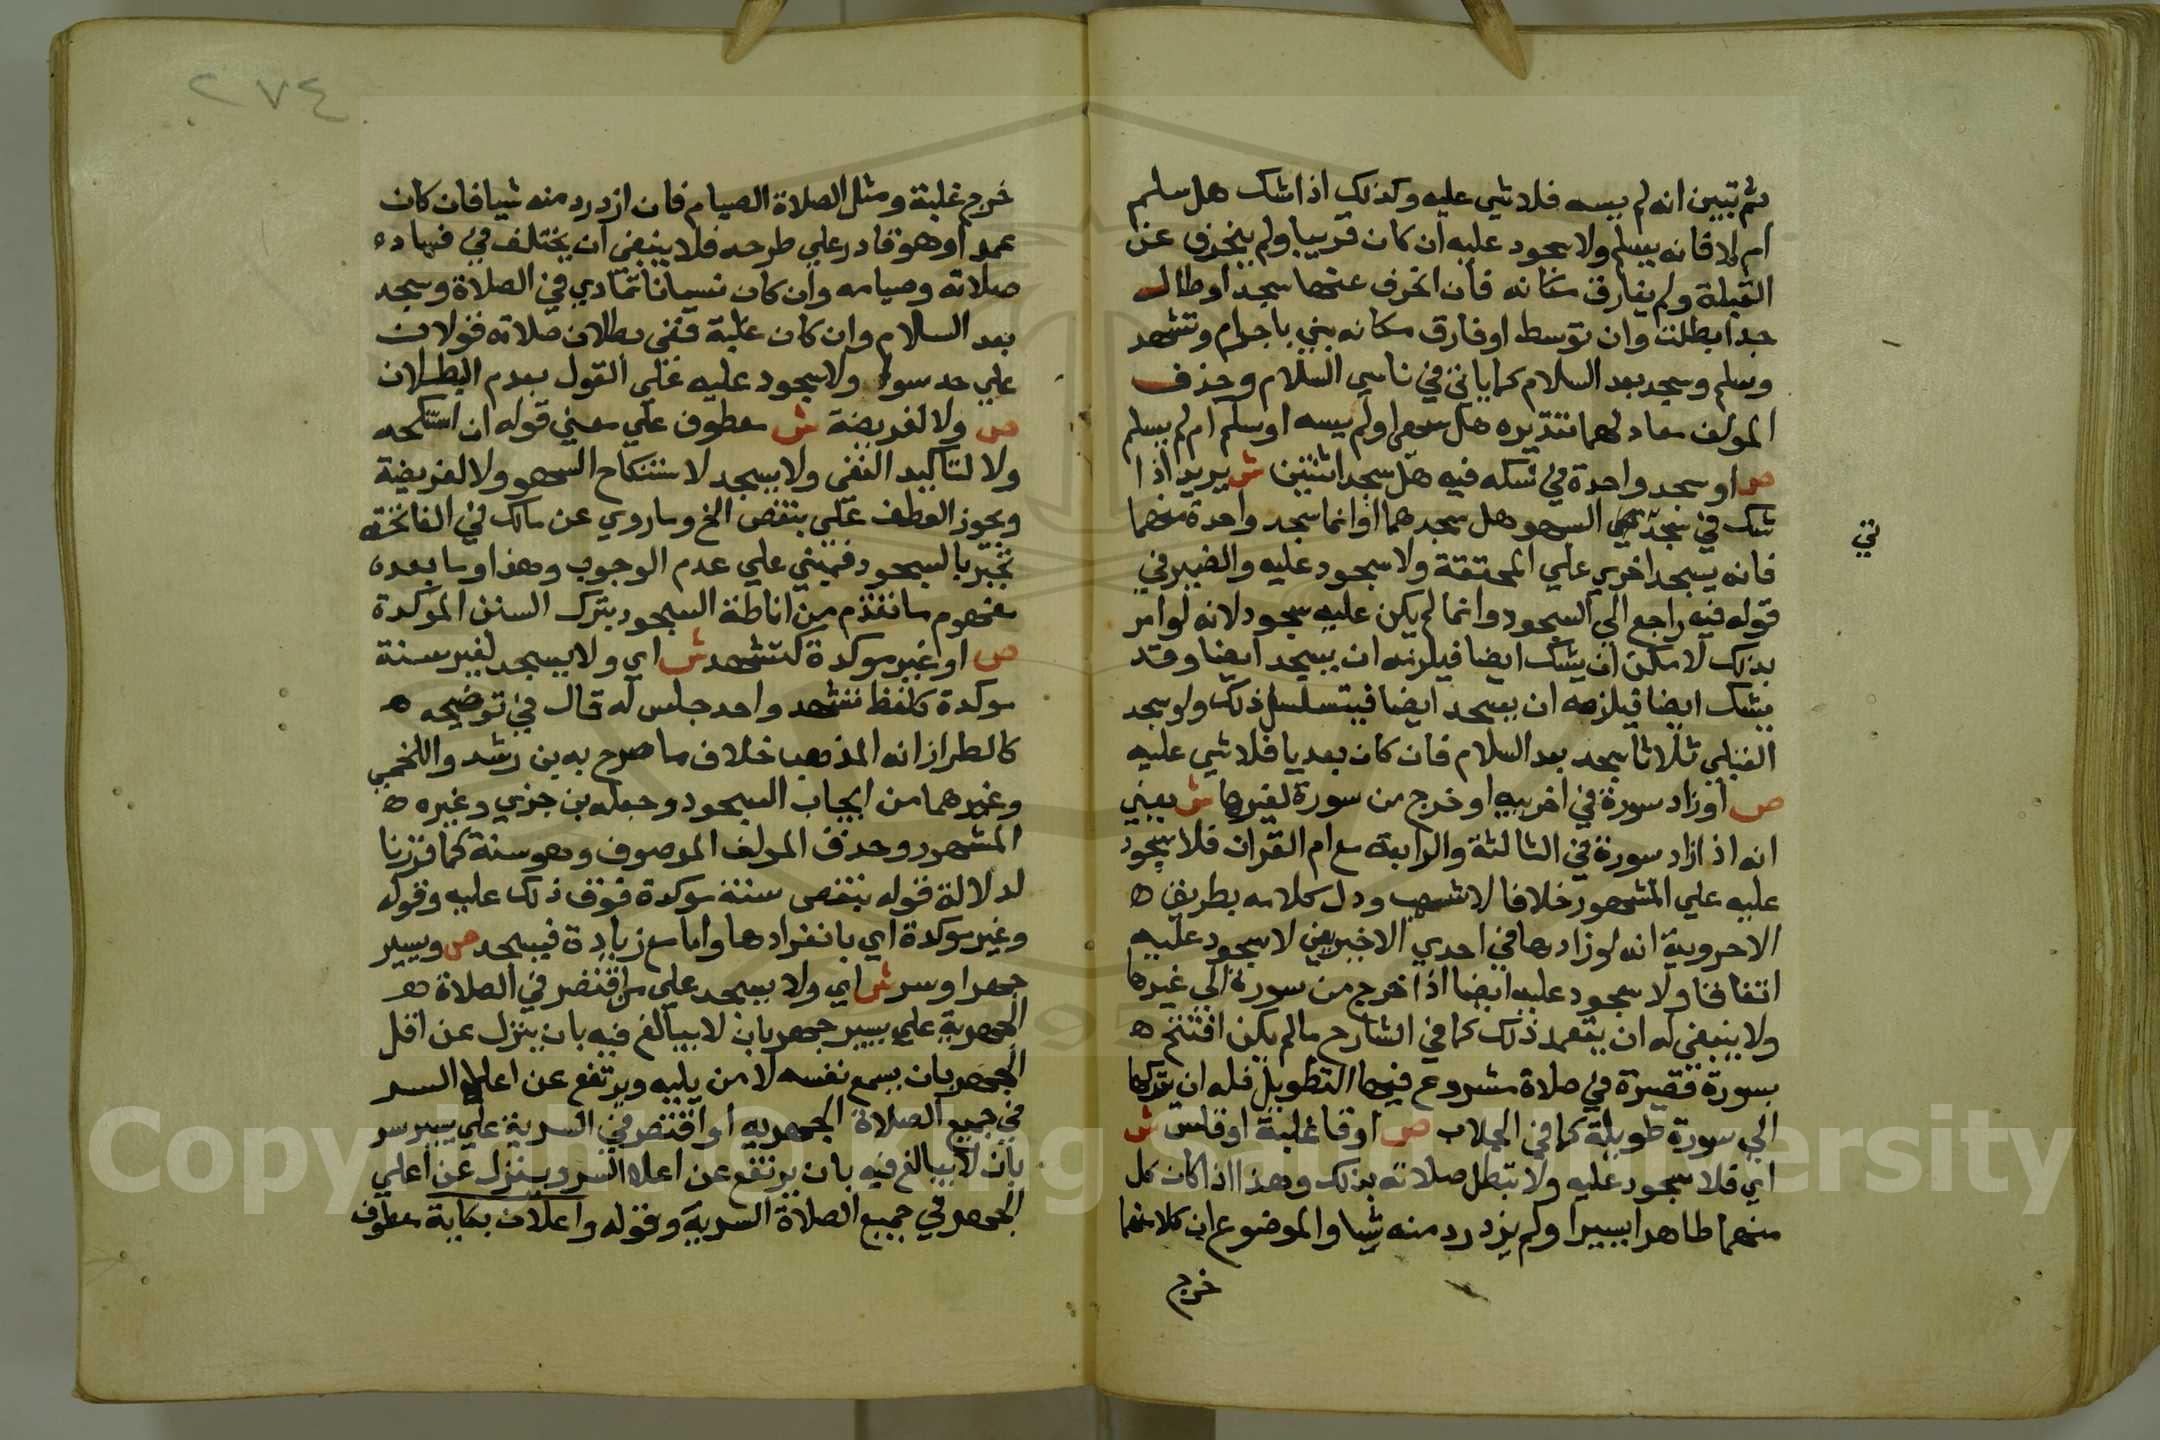 ثم تبين انه لم يسه فلا شي عليه وكذلك اذا شك هل سلم
ام لا فانه يسلم ولا سجود عليه ان كان قريبا ولم ينحرف عن
القبلة ولم يفارق مكانه فان انحرف عنها سجد او طال
جدا بطلت وان توسط او فارق مكانه بني باحرام وتشهد
وسلم وسجد بعد السلام كما ياتي في ناسي السلام وحذف
المولف معادلهما تقديره هل سهى او لم يسه او سلم ام لم يسلم
ص او سجد واحدة في شكه فيه هل سجد اثنتين ش يريد اذا
شك في سجدتي السهو هل سجدهما او انما سجد واحدة منهما
تي
فانه يسجد اخري علي المحققة ولا سجود عليه والضمير في
قوله فيه راجع الي السجود وانما لم يكن عليه سجود لانه لو امر
بذلك لامكن ان يشك ايضا فيلزمه ان يسجد ايضا وقد
يشك ايضا فيلزمه ان يسجد ايضا فيتسلسل ذلك ولو سجد
القبلي ثلاثا سجد بعد السلام فان كان بعديا فلا شي عليه
ص او زاد سورة في اخرييه او خرج من سورة لغيرها ش يعني
انه اذا زاد سورة في الثالثة والرابعة مع ام القران فلا سجود
عليه علي المشهور خلافا لاشهب ودل كلامه بطريق ه
الاحروية انه لو زادها في احدي الاخيرين لا سجود عليه
اتفاقا ولا سجود عليه ايضا اذا خرج من سورة الي غيرها
ولا ينبغي له ان يتعمد ذلك كما في الشارح ما لم يكن افتتح ه
بسورة قصيرة في صلاة مشروع فيها التطويل فله ان يتركها
الي سورة طويلة كما في الجلاب ص او قا غلبة او قلس ش
اي فلا سجود عليه ولا تبطل صلاته بذلك وهذا اذا كان كل
منهما طاهرا يسيرا ولم يزدرد منه شيا والموضوع ان كلا منهما
خرج
٢٧٤
خرج غلبة ومثل الصلاة الصيام فان ازدرد منه شيا فان كان
عمدا وهو قادر علي طرحه فلا ينبغي ان يختلف في فساده
صلاته وصيامه وان كان نسيانا تمادي في الصلاة وسجد
بعد السلام وان كان غلبة ففي بطلان صلاته قولان
علي حد سوا ولا سجود عليه علي القول بعدم البطلان
ص ولا لفريضة ش معطوف علي معني قوله ان استنكحه
ولا لتاكيد النفي ولا يسجد لاستنكاح السهو ولا لفريضة
ويجوز العطف علي بنقص الخ وما روي عن مالك في الفاتحة
تجبر بالسجود فمبني علي عدم الوجوب وهذا وما بعده
مفهوم ما تقدم من اناطة السجود بترك السنن الموكدة
ص او غير موكدة كتشهد ش اي ولا يسجد لغير سنة
موكدة كلفظ تشهد واحد جلس له قال في توضيحه ه
كالطراز انه المذهب خلاف ما صرح به بن رشد واللخمي
وغيرهما من ايجاب السجود وجعله بن جزي وغيره ه
المشهور وحذف المولف الموصوف وهو سنة كما قررنا
لدلالة قوله بنقص سنة موكدة فوق ذلك عليه وقوله
وغير موكدة اي بانفرادها واما مع زيادة فيسجد ص ويسير
جهر او سر ش اي ولا يسجد علي من اقتصر في الصلاة ه
الجهرية علي يسير جهر بان لا يبالغ فيه بان ينزل عن اقل
الجهر بان يسمع نفسه لا من يليه ويرتفع عن اعلي السر
في جميع الصلاة الجهرية او اقتصر في السرية علي يسير سر
بان لا يبالغ فيه بان يرتفع عن اعلا السر وينزل عن اعلي
الجهر في جميع الصلاة السرية وقوله واعلان بكاية معطوف
Copyright © King Saud University